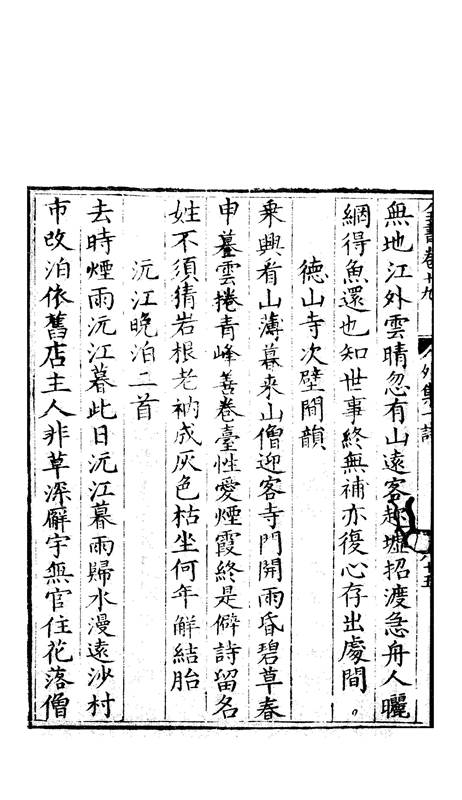 全書卷十九 外集一 詩 八十五
無地江外雲晴忽有山遠客趁墟招渡急舟人曬
網得魚還也知世事終無補亦復心存出處間。
德山寺次壁間韻
乗興看山薄暮来山僧迎客寺門開雨昏碧草春
申墓雲捲青峰善卷臺性愛煙霞終是僻詩留名
姓不須猜岩根老衲成灰色枯坐何年解結胎
沅江晚泊二首
去時煙雨沅江暮此日沅江暮雨歸水漫遠沙村
市改泊依舊店主人非草深廨宇無官住花落僧